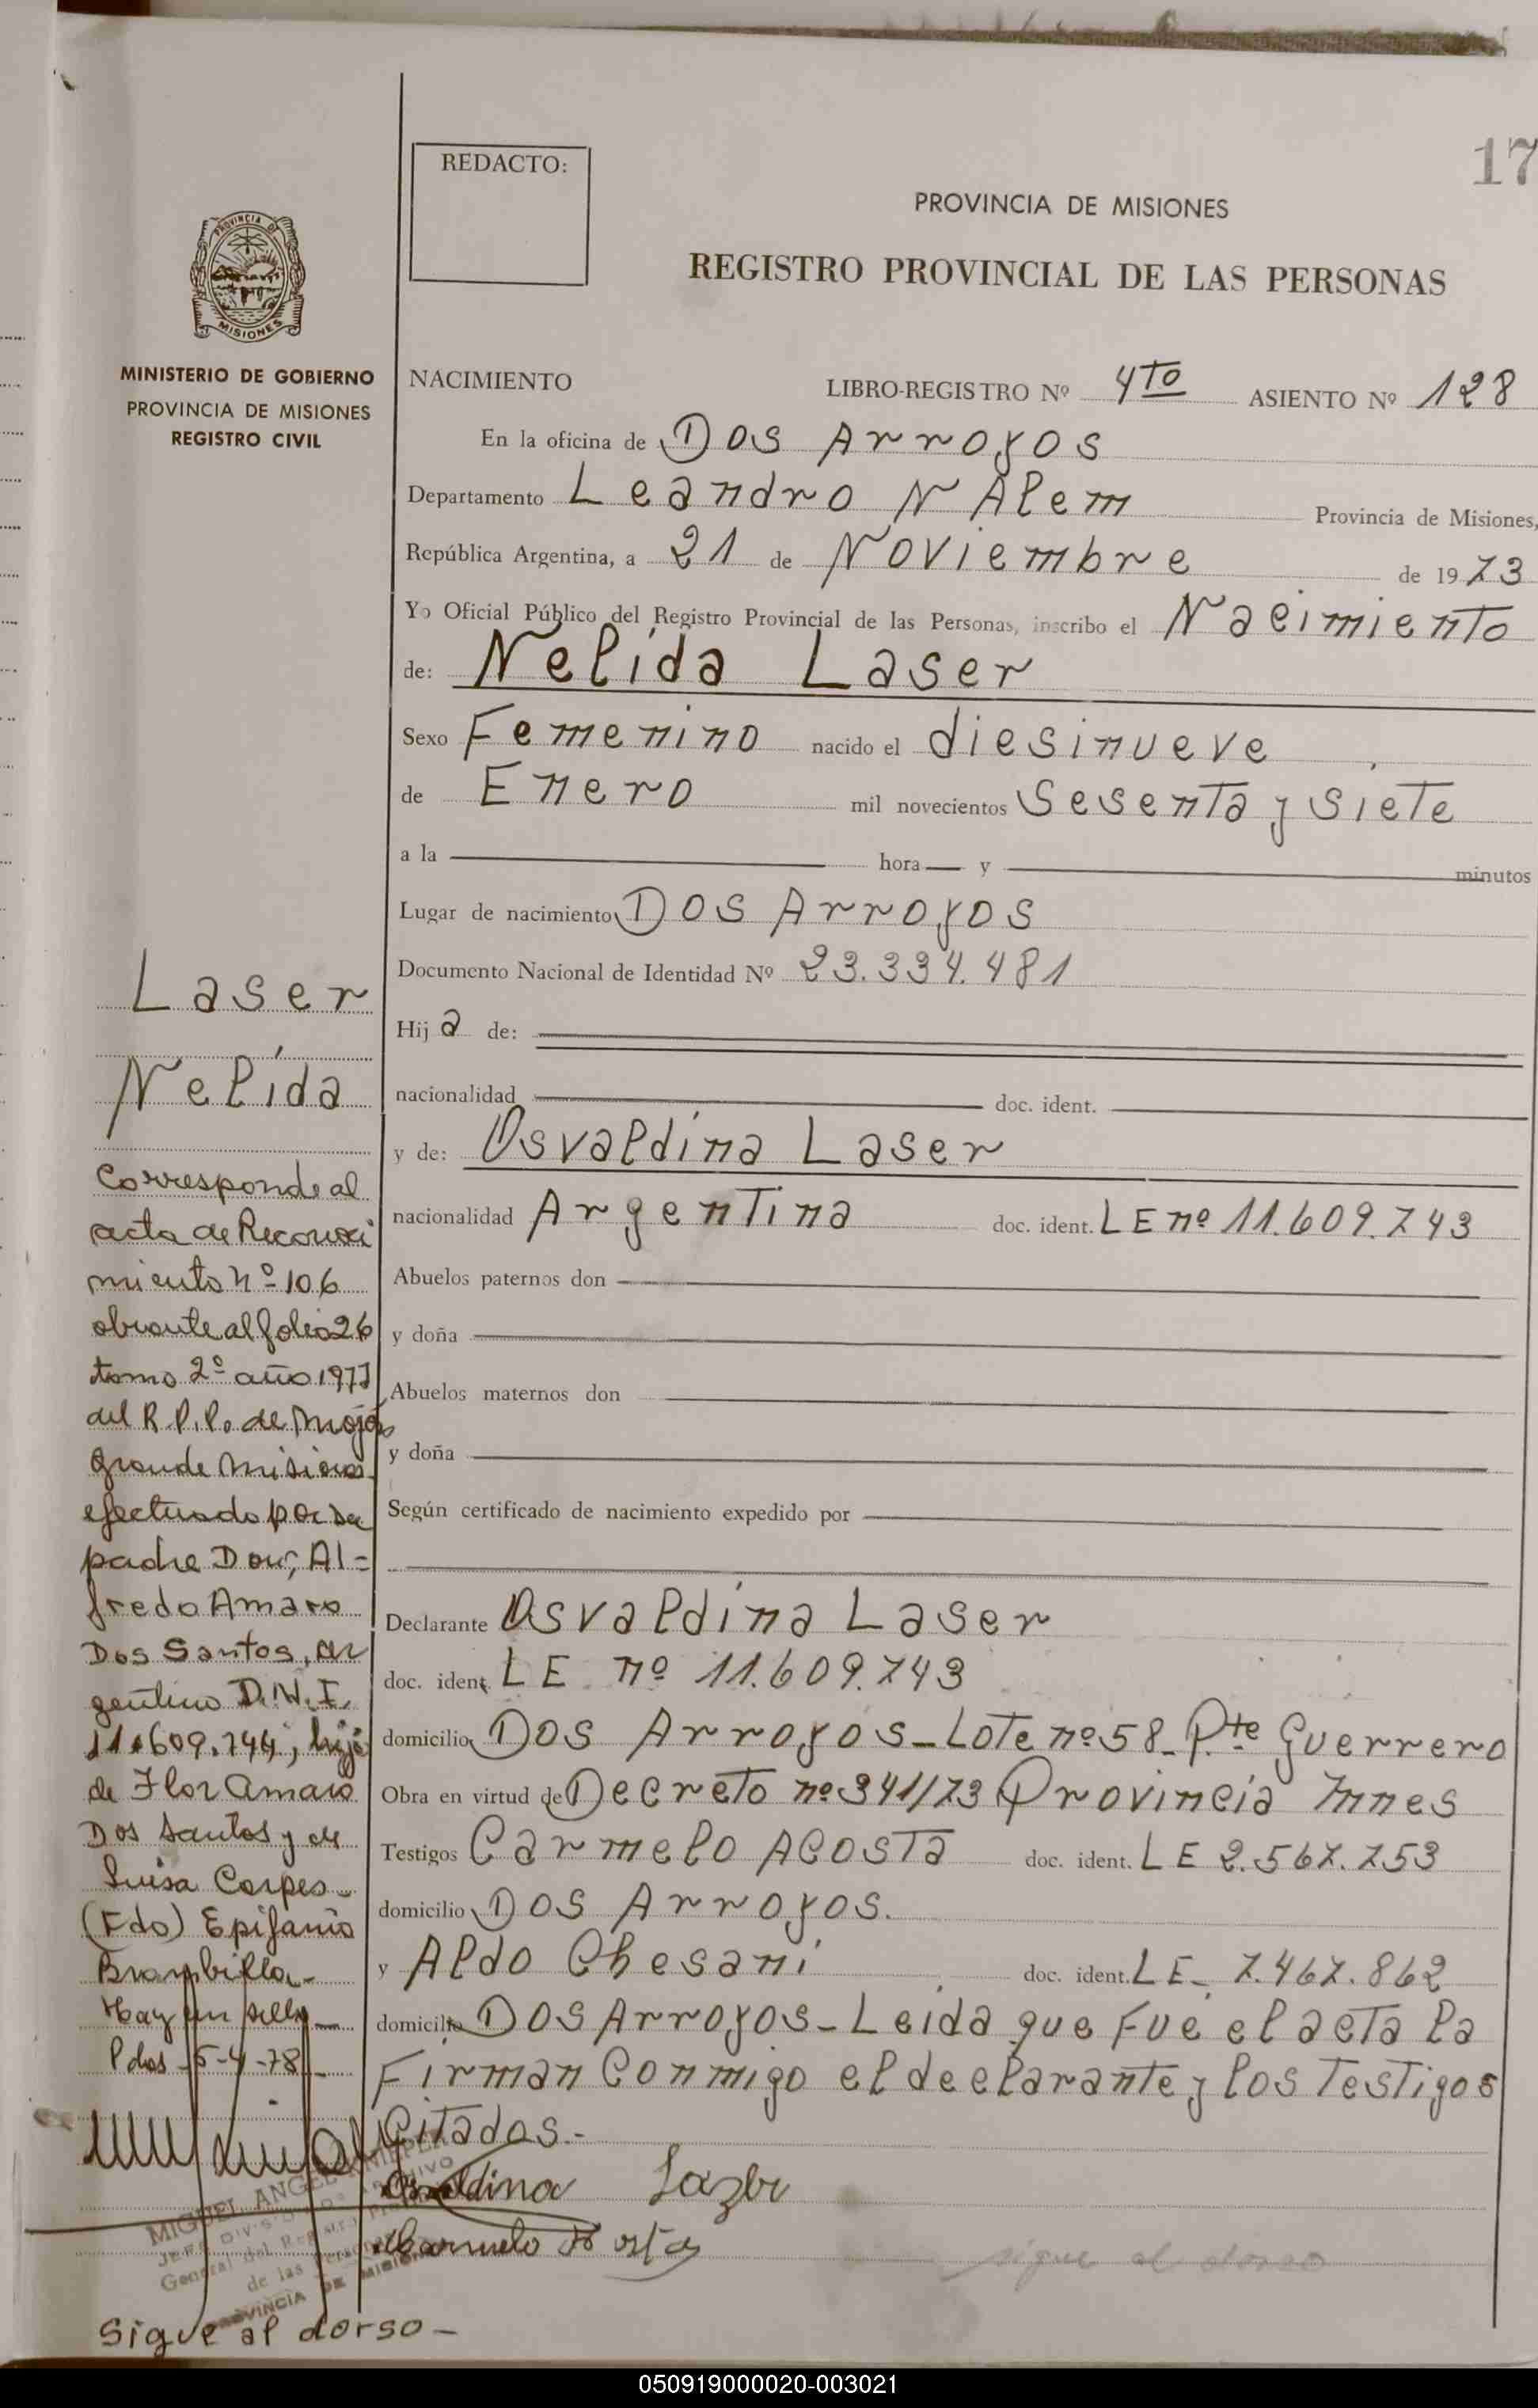 17
REDACTO:
PROVINCIA DE MISIONES
REGISTRO PROVINCIAL DE LAS PERSONAS
PROVINCIA DE
MISIONES
MINISTERIO DE GOBIERNO
PROVINCIA DE MISIONES
REGISTRO CIVIL
NACIMIENTO LIBRO-REGISTRO Nº 4to ASIENTO Nº 128
En la oficina de Dos Arroyos
Departamento Leandro N Alem Provincia de Misiones,
República Argentina, a 21 de Noviembre de 1973
Yo Oficial Público del Registro Provincial de las Personas, inscribo el Nacimiento
de: Nelida Laser
Sexo Femenino nacido el diesinueve
de Enero mil novecientos Sesenta y siete
a la hora y minutos
Lugar de nacimiento Dos Arroyos
Documento Nacional de Identidad Nº 23.334.481
Hija de:
nacionalidad doc. ident.
y de: Osvaldina Laser
nacionalidad Argentina doc. ident. LE nº 11.609.743
Abuelos paternos don
y doña
Abuelos maternos don
y doña
Según certificado de nacimiento expedido por
Declarante Osvaldina Laser
doc. ident. LE nº 11.609.743
domicilio Dos Arroyos - Lote nº 58 - Pte Guerrero
Obra en virtud de Decreto nº 341/73 Provincia Mnes
Testigos Carmelo Acosta doc. ident. LE 2.567.753
domicilio Dos Arroyos.
y Aldo Chesani doc. ident. LE. 7.467.862
domicilio Dos Arroyos - Leida que Fué el acta la
Firman Conmigo el declarante y los Testigos
Citados.-
Laser
Nelída
Corresponde al
acta de Reconoci
miento nº 106
obrante al folio 26
tomo 2º año 1977
del R.P.P. de Mojón
Grande Misiones
efectuado por su
padre Don; Al=
fredo Amaro
Dos Santos, ar
gentino D.N.I.
11.609.744; hijo
de Flor Amaro
Dos Santos y de
Luisa Carpes -
(Fdo) Epifanio
Brambilla -
Hay un sello -
Pdas - 5-4-78 -
MIGUEL ANGEL
General del Registro
de las Personas
PROVINCIA DE MISIONES
sigue al dorso
Sigue al dorso -
050919000020-003021